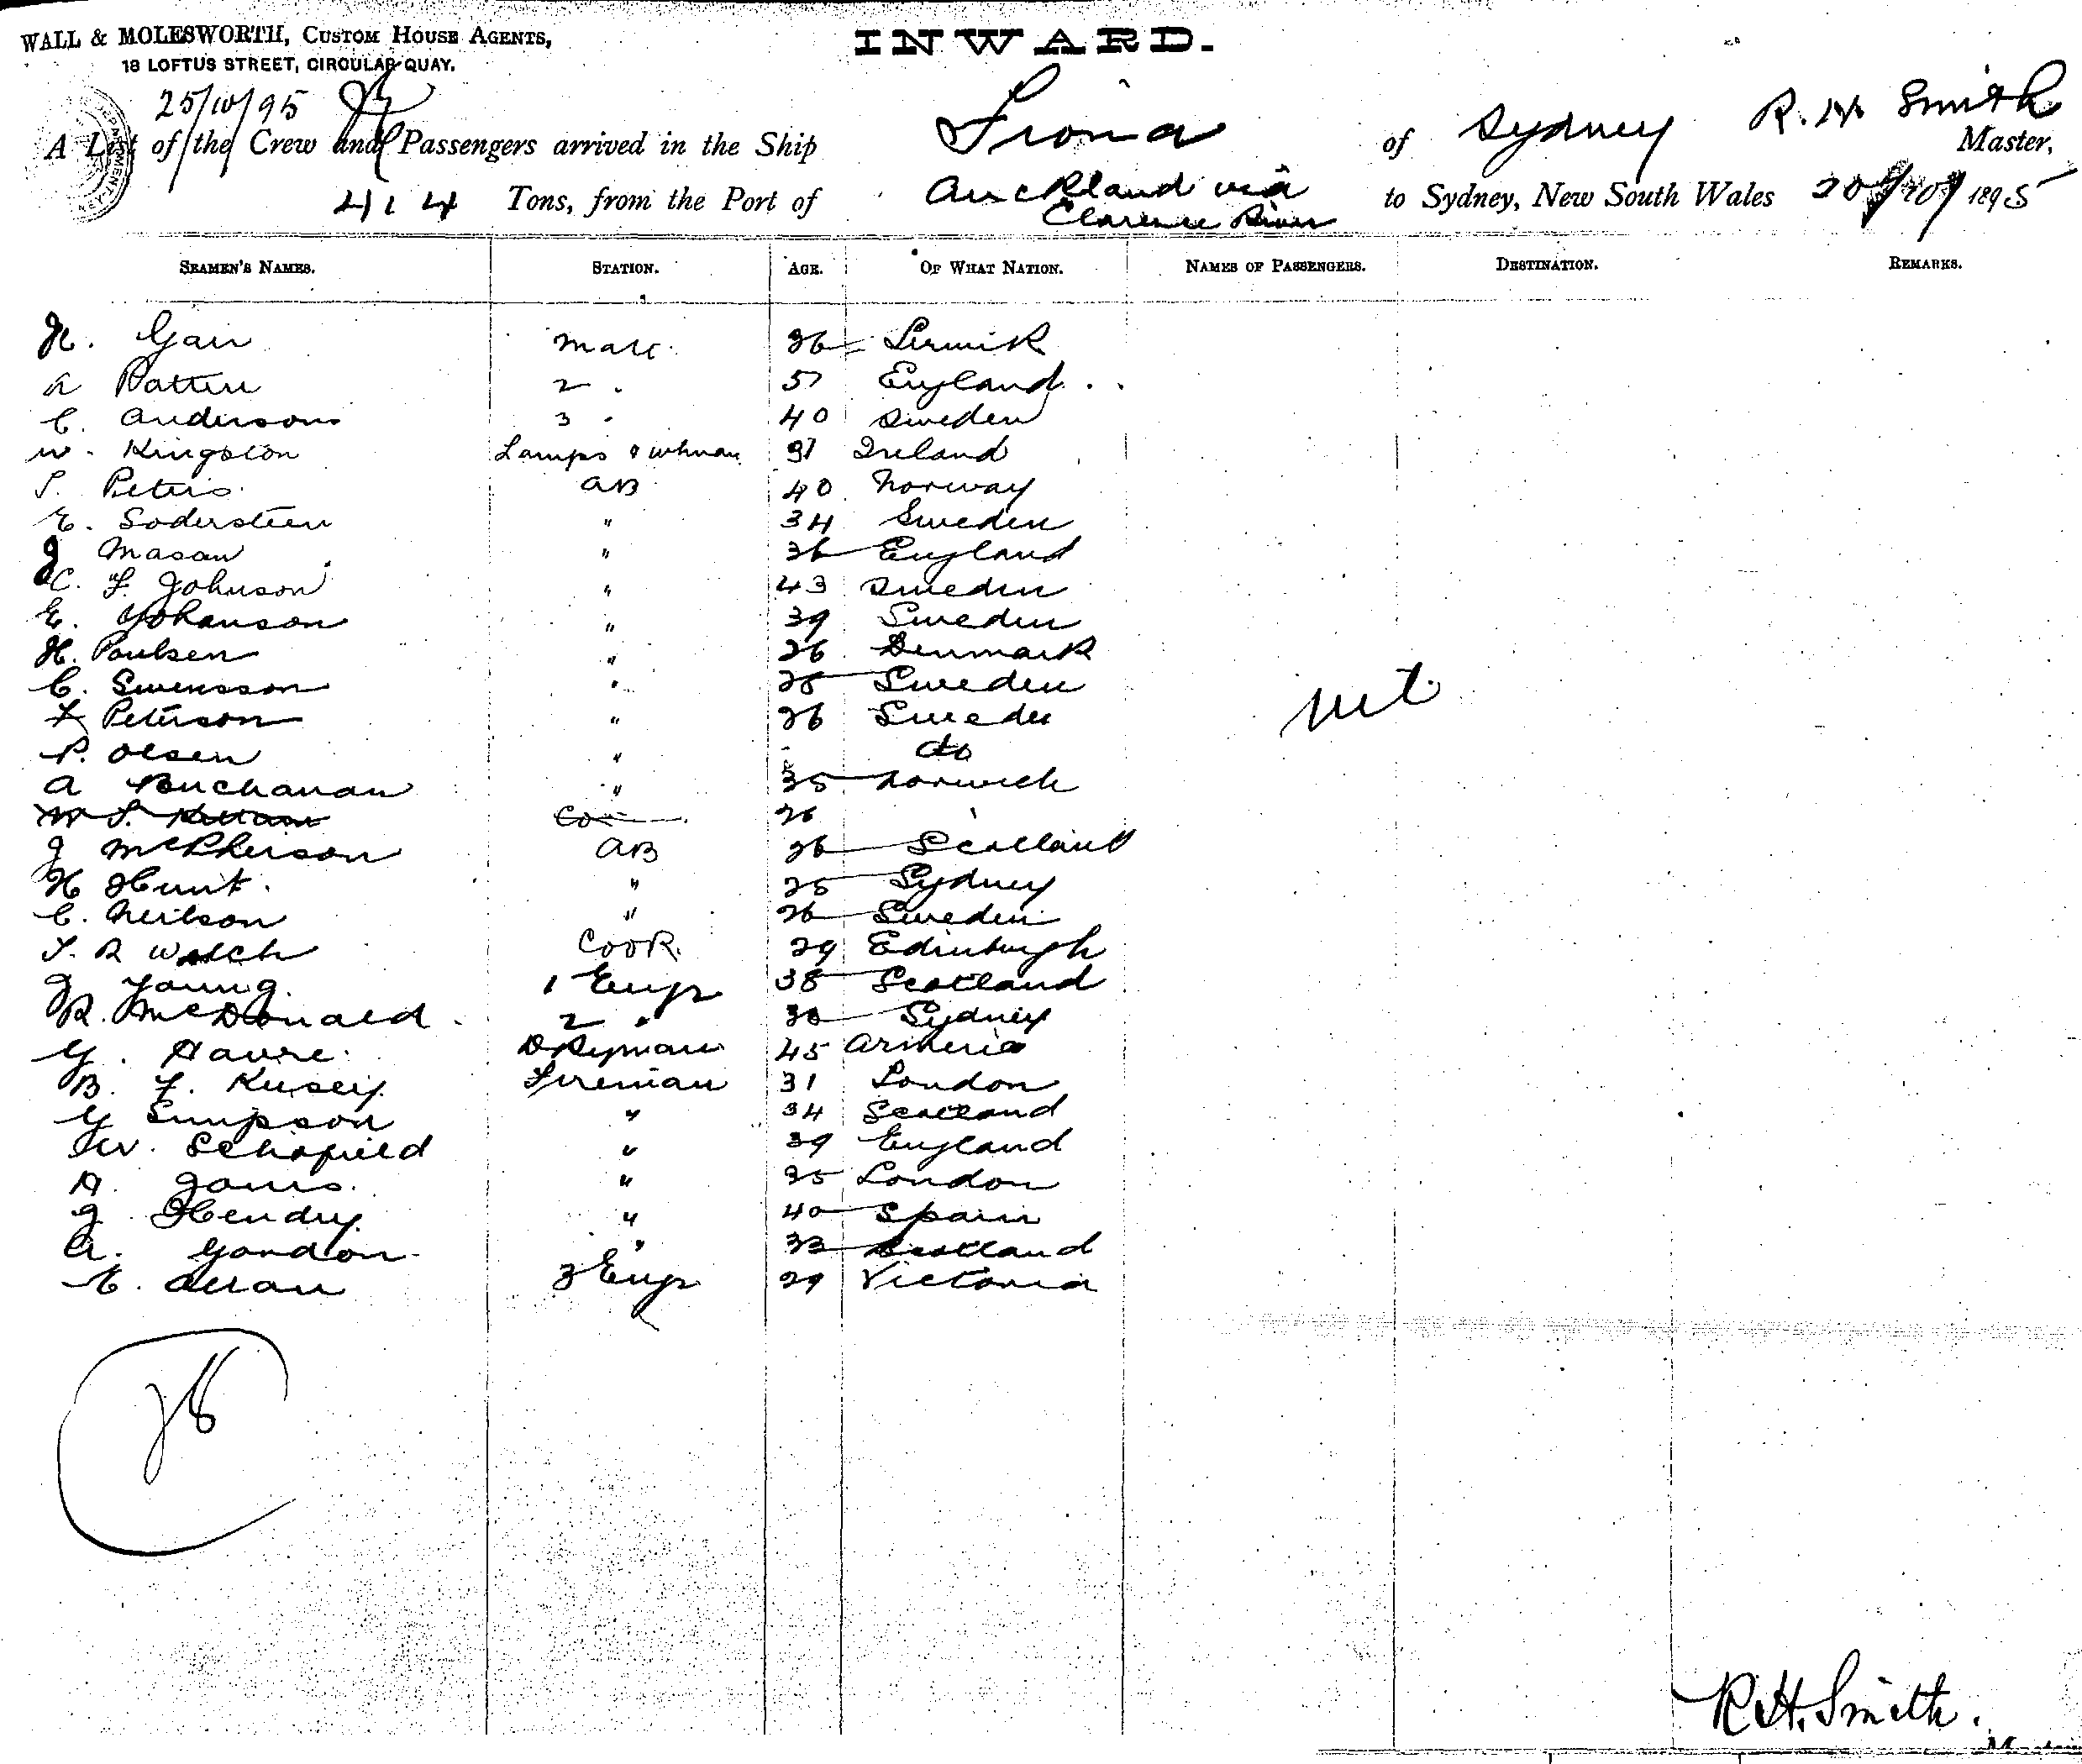 WALL & MOLESWORTH, CUSTOM HOUSE AGENTS,
18 LOFTUS STREET, CIRCULAR QUAY.
INWARD.
25/10/95
A List of the Crew and Passengers arrived in the Ship Fiona of Sydney R. H. Smith Master,
414 Tons, from the Port of Auckland via Clarence River to Sydney, New South Wales 20/10/1895
SEAMEN'S NAMES. STATION. AGE. OF WHAT NATION. NAMES OF PASSENGERS. DESTINATION. REMARKS.
H. Gair Mate 36 Lerwick
A Patten 2 " 57 England
C. Anderson 3 " 40 Sweden
W. Kingston Lamps & 31 Ireland
P. Peters AB 40 Norway
E. Sodersteen " 34 Sweden
J Mason " 36 England
C. F. Johnson " 43 Sweden
E. Johanson " 39 Sweden
H. Poulsen " 26 Denmark
C. Swensson " 25 Sweden
F Peterson " 26 Sweden
P. Olsen " do
A Buchanan " 35 Norwich
26
J McPherson AB 26 Scotland
H Hunt " 25 Sydney
C. Neilson " 26 Sweden
T. R Welch Cook 29 Edinburgh
J Young 1 Engr 38 Scotland
R. McDonald 2 " 30 Sydney
G. Havre Dkyman 45 Armenia
B. F. Kusey Fireman 31 London
G Simpson " 34 Scotland
W. Schofield " 39 England
A. James " 35 London
J Hendry " 40 Spain
A. Gordon " 33 Scotland
E. Allan 3 Engr 29 Victoria
nil
R. H. Smith.